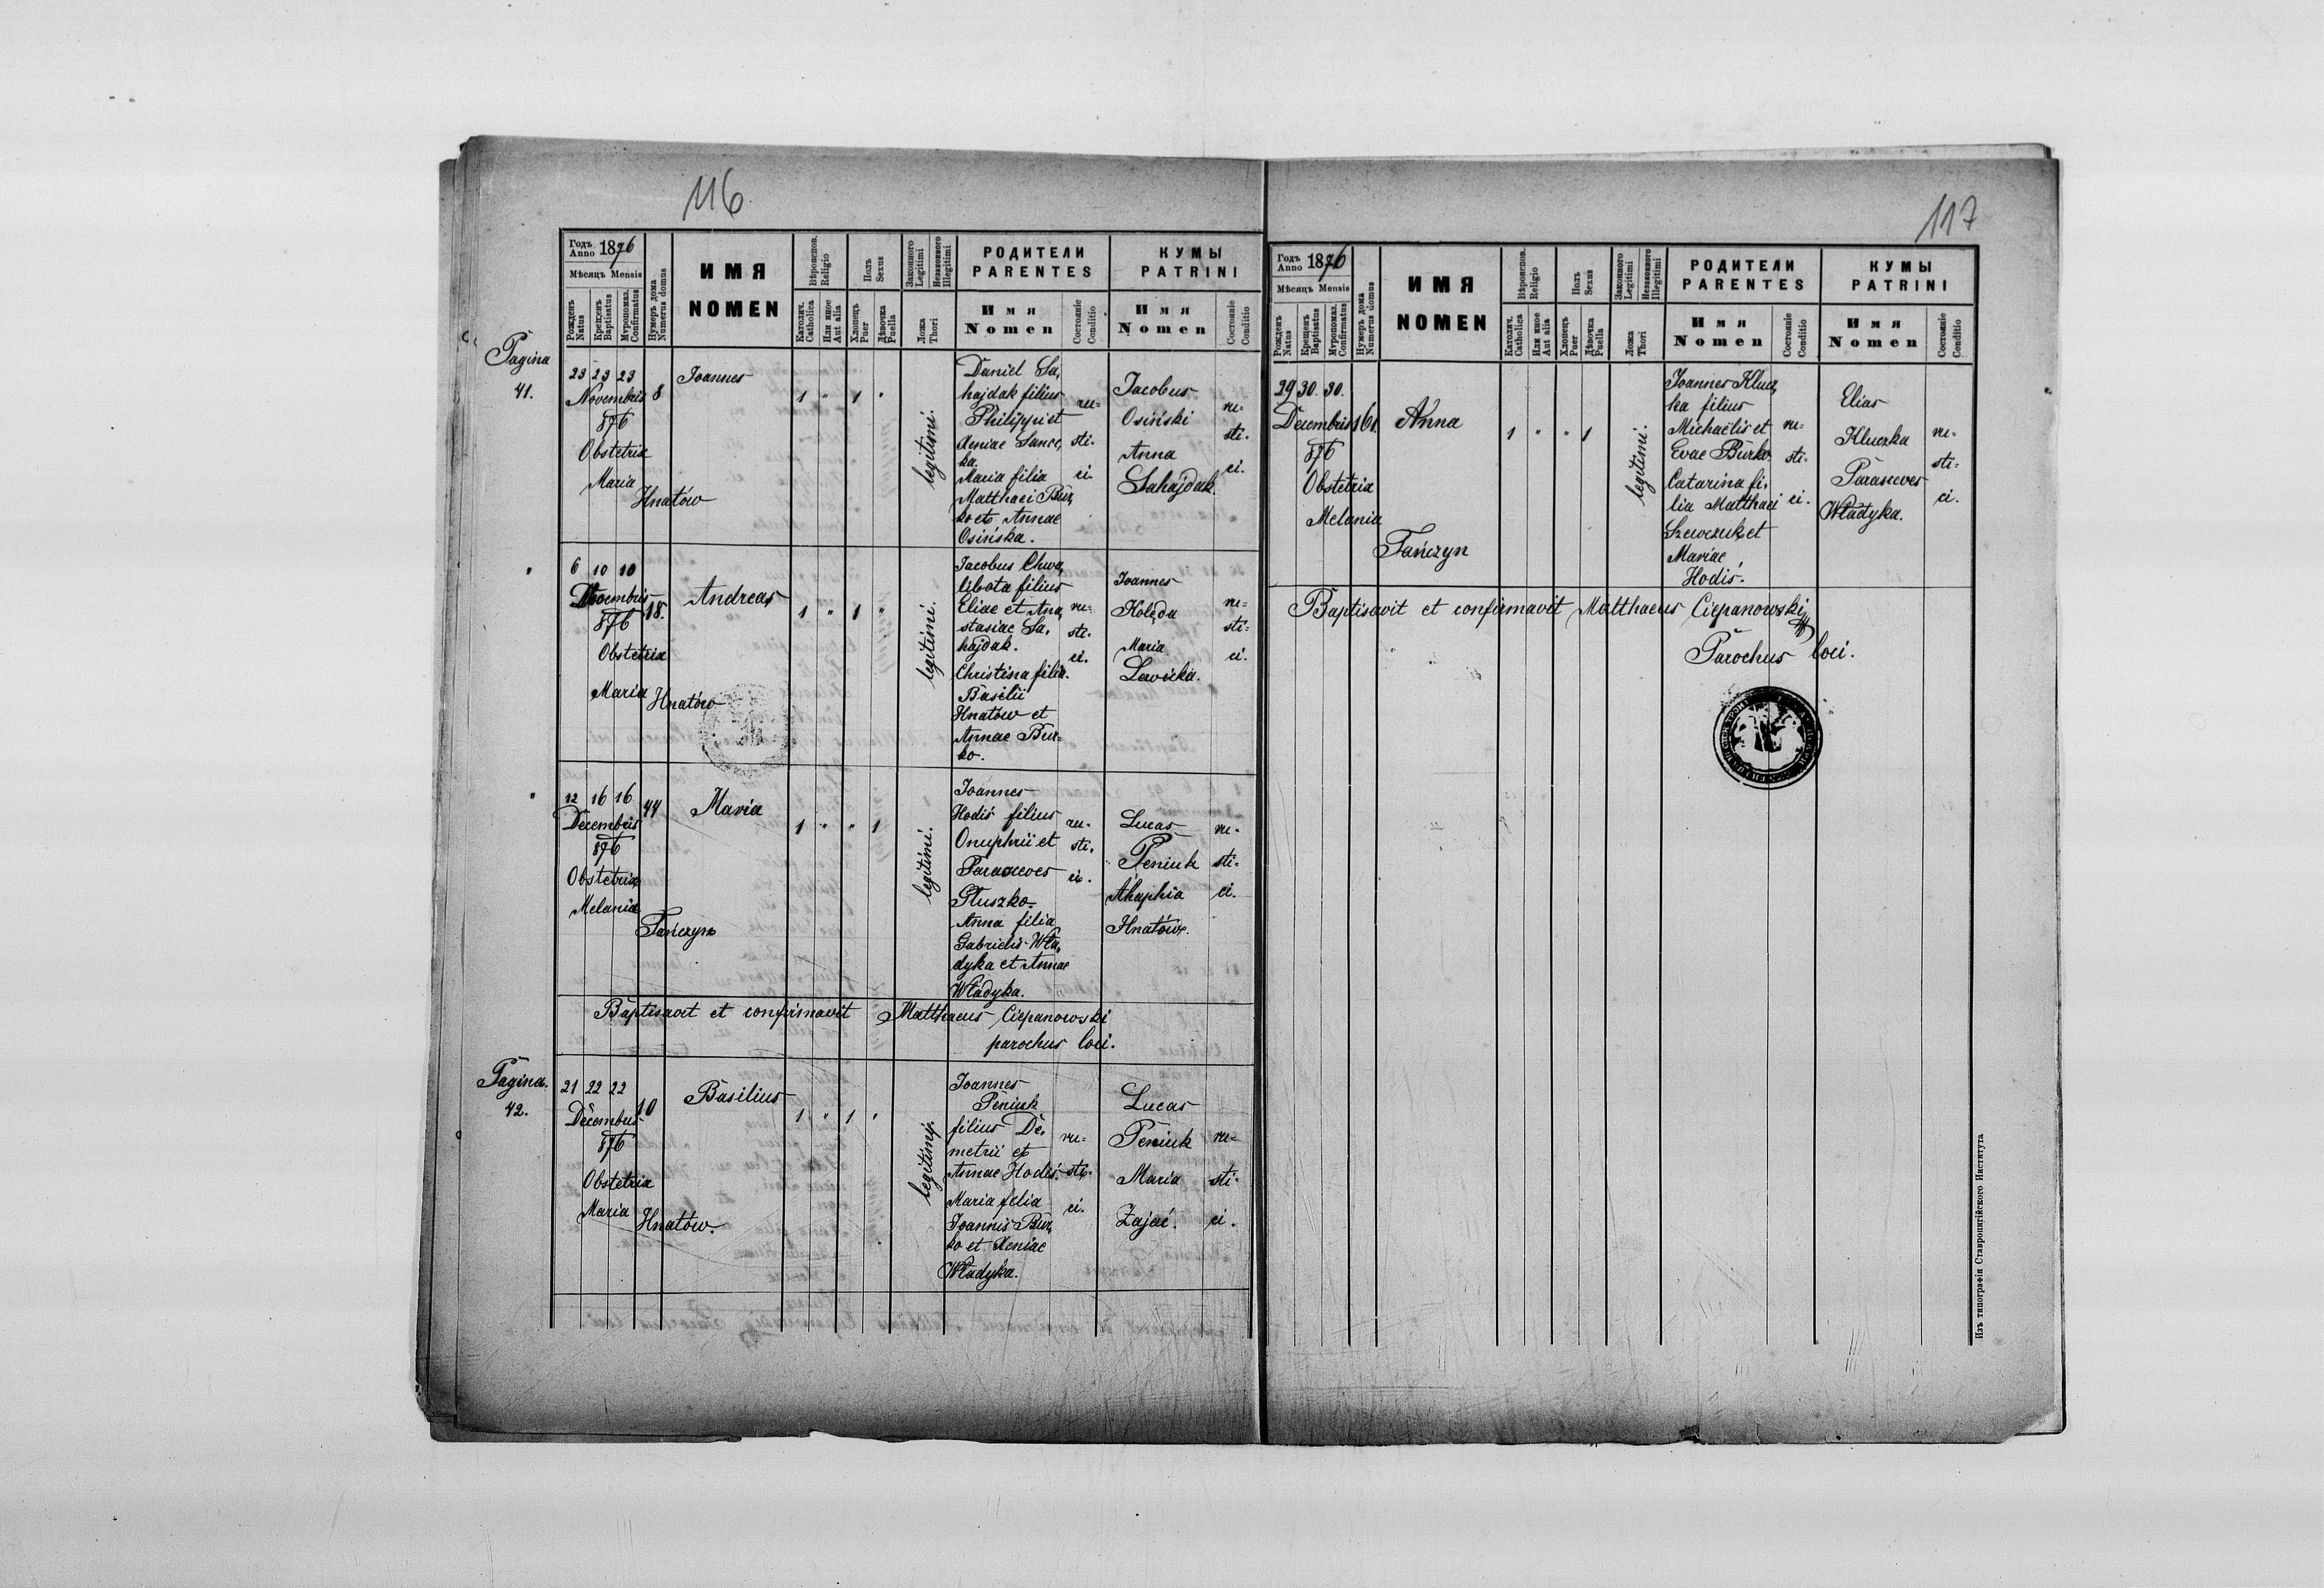 116
Годъ Anno 1876
Мѣсяцъ Mensis
Рожденъ Natus
Крещенъ Baptisatus
Муропомаз. Confirmatus
Нумеръ дома Numerus domus
ИМЯ
NOMEN
Вѣроиспов. Religio
Католич. Catholica
Или иное Aut alia
Полъ Sexus
Хлопецъ Puer
Дѣвочка Puella
Законного Legitimi
Незаконного Illegitimi
Ложа Thori
РОДИТЕЛИ
PARENTES
Имя
Nomen
Состояніе Conditio
КУМЫ
PATRINI
Имя
Nomen
Состояніе Conditio
Pagina
41.
23 23 23
Novembris 8
876
Obstetrix
Maria
Hnatów
Joannes
1 " 1 "
legitimi.
Daniel Sa,
hajdak filius
Philippi et
Xeniae Sanec,
ka.
Maria filia
Matthaei Bur,
ko et Annae
Osińska.
ru=
sti.
ci.
Jacobus
Osiński
Anna
Sahajdak.
ru=
sti.
ci.
6 10 10
Decembris 18.
876
Obstetrix
Maria Hnatów
Andreas
1 " 1 "
legitimi.
Jacobus Chwa,
libota filius
Eliae et Ana,
stasiae Sa,
hajdak.
Christina filia
Basilii
Hnatów et
Annae Bur=
ko.
ru=
sti.
ci.
Joannes
Kolęda
Maria
Lewicka.
ru=
sti=
ci.
12 16 16
Decembris 44
876
Obstetrix
Melania
Tańczyn
Maria
1 " " 1
legitimi.
Joannes
Hodiś filius
Onuphrii et
Parasceves
Pluszko.
Anna filia
Gabrielis Wła,
dyka et Annae
Władyka.
ru=
sti.
ci.
Lucas
Peniuk
Ahaphia
Hnatów.
ru=
sti=
ci.
Baptisavit et confirmavit Matthaeus Ciepanowski
parochus loci.
Pagina.
42.
21 22 22
Decembris 10
876
Obstetrix
Maria
Hnatów.
Basilius
1 " 1 "
legitimi.
Joannes
Peniuk
filius De,
metrii et
Annae Hodiś.
Maria filia
Joannis Bur,
ko et Xeniae
Władyka.
ru=
sti=
ci.
Lucas
Peniuk
Maria
Zając.
ru=
sti=
ci.
117
Годъ Anno 1876
Мѣсяцъ Mensis
Рожденъ Natus
Крещенъ Baptisatus
Муропомаз. Confirmatus
Нумеръ дома Numerus domus
ИМЯ
NOMEN
Вѣроиспов. Religio
Католич. Catholica
Или иное Aut alia
Полъ Sexus
Хлопецъ Puer
Дѣвочка Puella
Законного Legitimi
Незаконного Illegitimi
Ложа Thori
РОДИТЕЛИ
PARENTES
Имя
Nomen
Состояніе Conditio
КУМЫ
PATRINI
Имя
Nomen
Состояніе Conditio
29 30. 30.
Decembris 161.
876
Obstetrix
Melania
Tańczyn
Anna
1 " " 1
legitimi.
Joannes Klucz,
ka filius
Michaëlis et
Evae Burko.
Catarina fi,
lia Matthaei
Szewczuk et
Mariae
Hodiś.
ru=
sti=
ci.
Elias
Kluczka
Parasceves
Władyka.
ru=
sti=
ci.
Baptisavit et confirmavit Matthaeus Ciepanowski
Parochus loci.
Изъ типографіи Ставропигійского Института